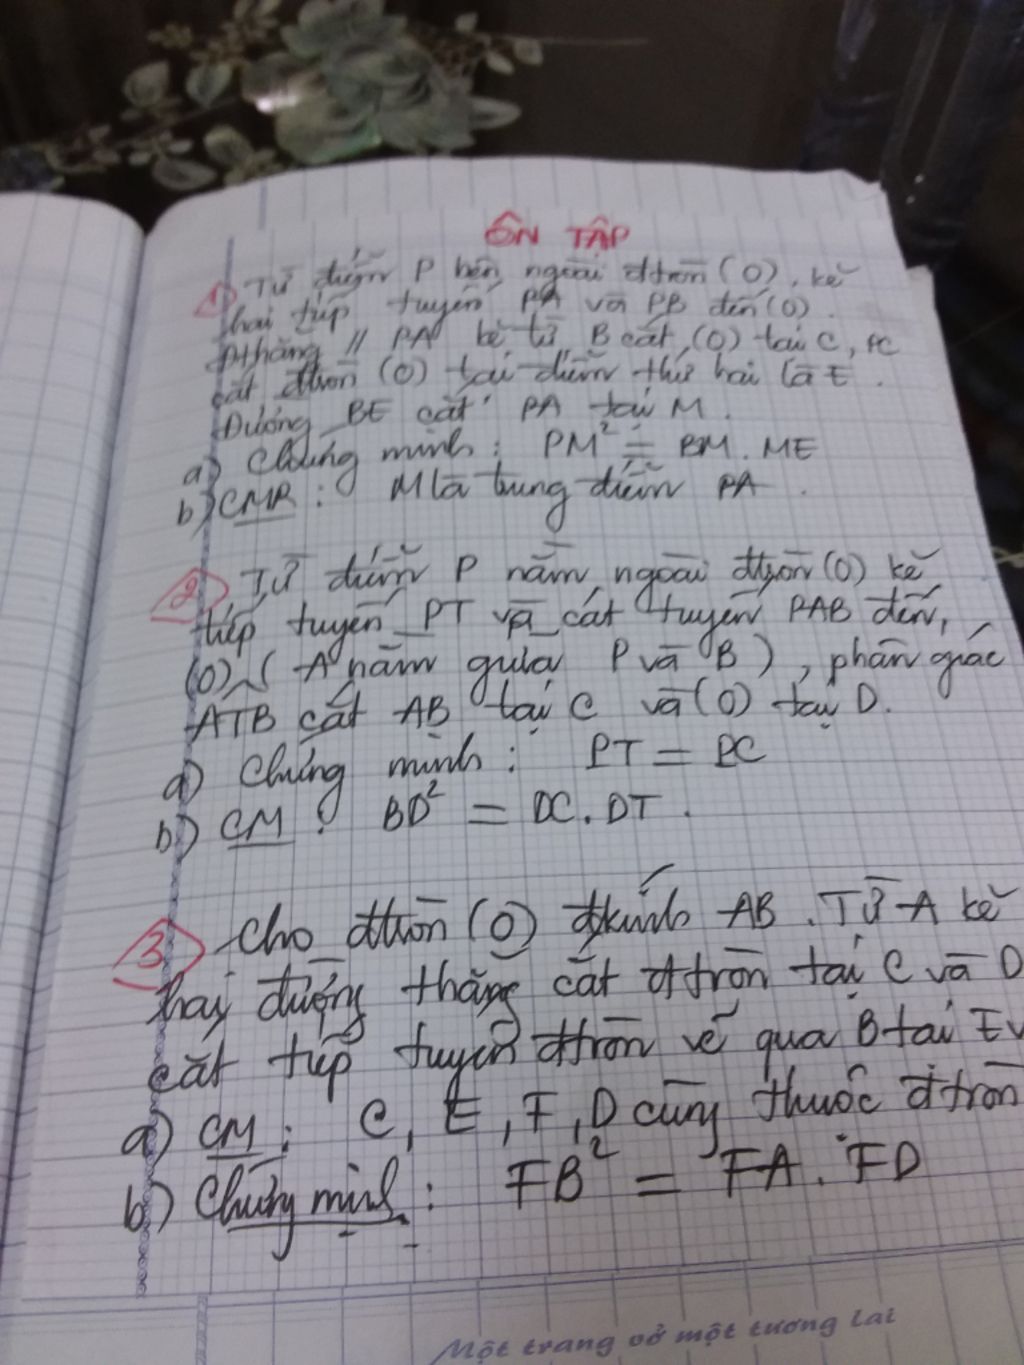 ÔN TẬP
1 Từ điểm P bên ngoài đtròn (O), kẻ
hai tiếp tuyến PA và PB đến (O).
Đthẳng // PA kẻ từ B cắt (O) tại C, PC
cắt đtròn (O) tại điểm thứ hai là E.
Đường BE cắt PA tại M.
a) Chứng minh : PM² = BM. ME
b) CMR : M là trung điểm PA.
2 Từ điểm P nằm ngoài đtròn (O) kẻ
tiếp tuyến PT và cát tuyến PAB đến
(O) ( A nằm giữa P và B ), phân giác
ATB cắt AB tại C và (O) tại D.
a) Chứng minh : PT = PC
b) CM : BD² = DC. DT.
3 Cho đtròn (O) đkính AB. Từ A kẻ
hai đường thẳng cắt đtròn tại C và D
cắt tiếp tuyến đtròn vẽ qua B tại E v
a) CM : C, E, F, D cùng thuộc đtròn
b) Chứng minh : FB² = FA. FD
Một trang vở một tương lai